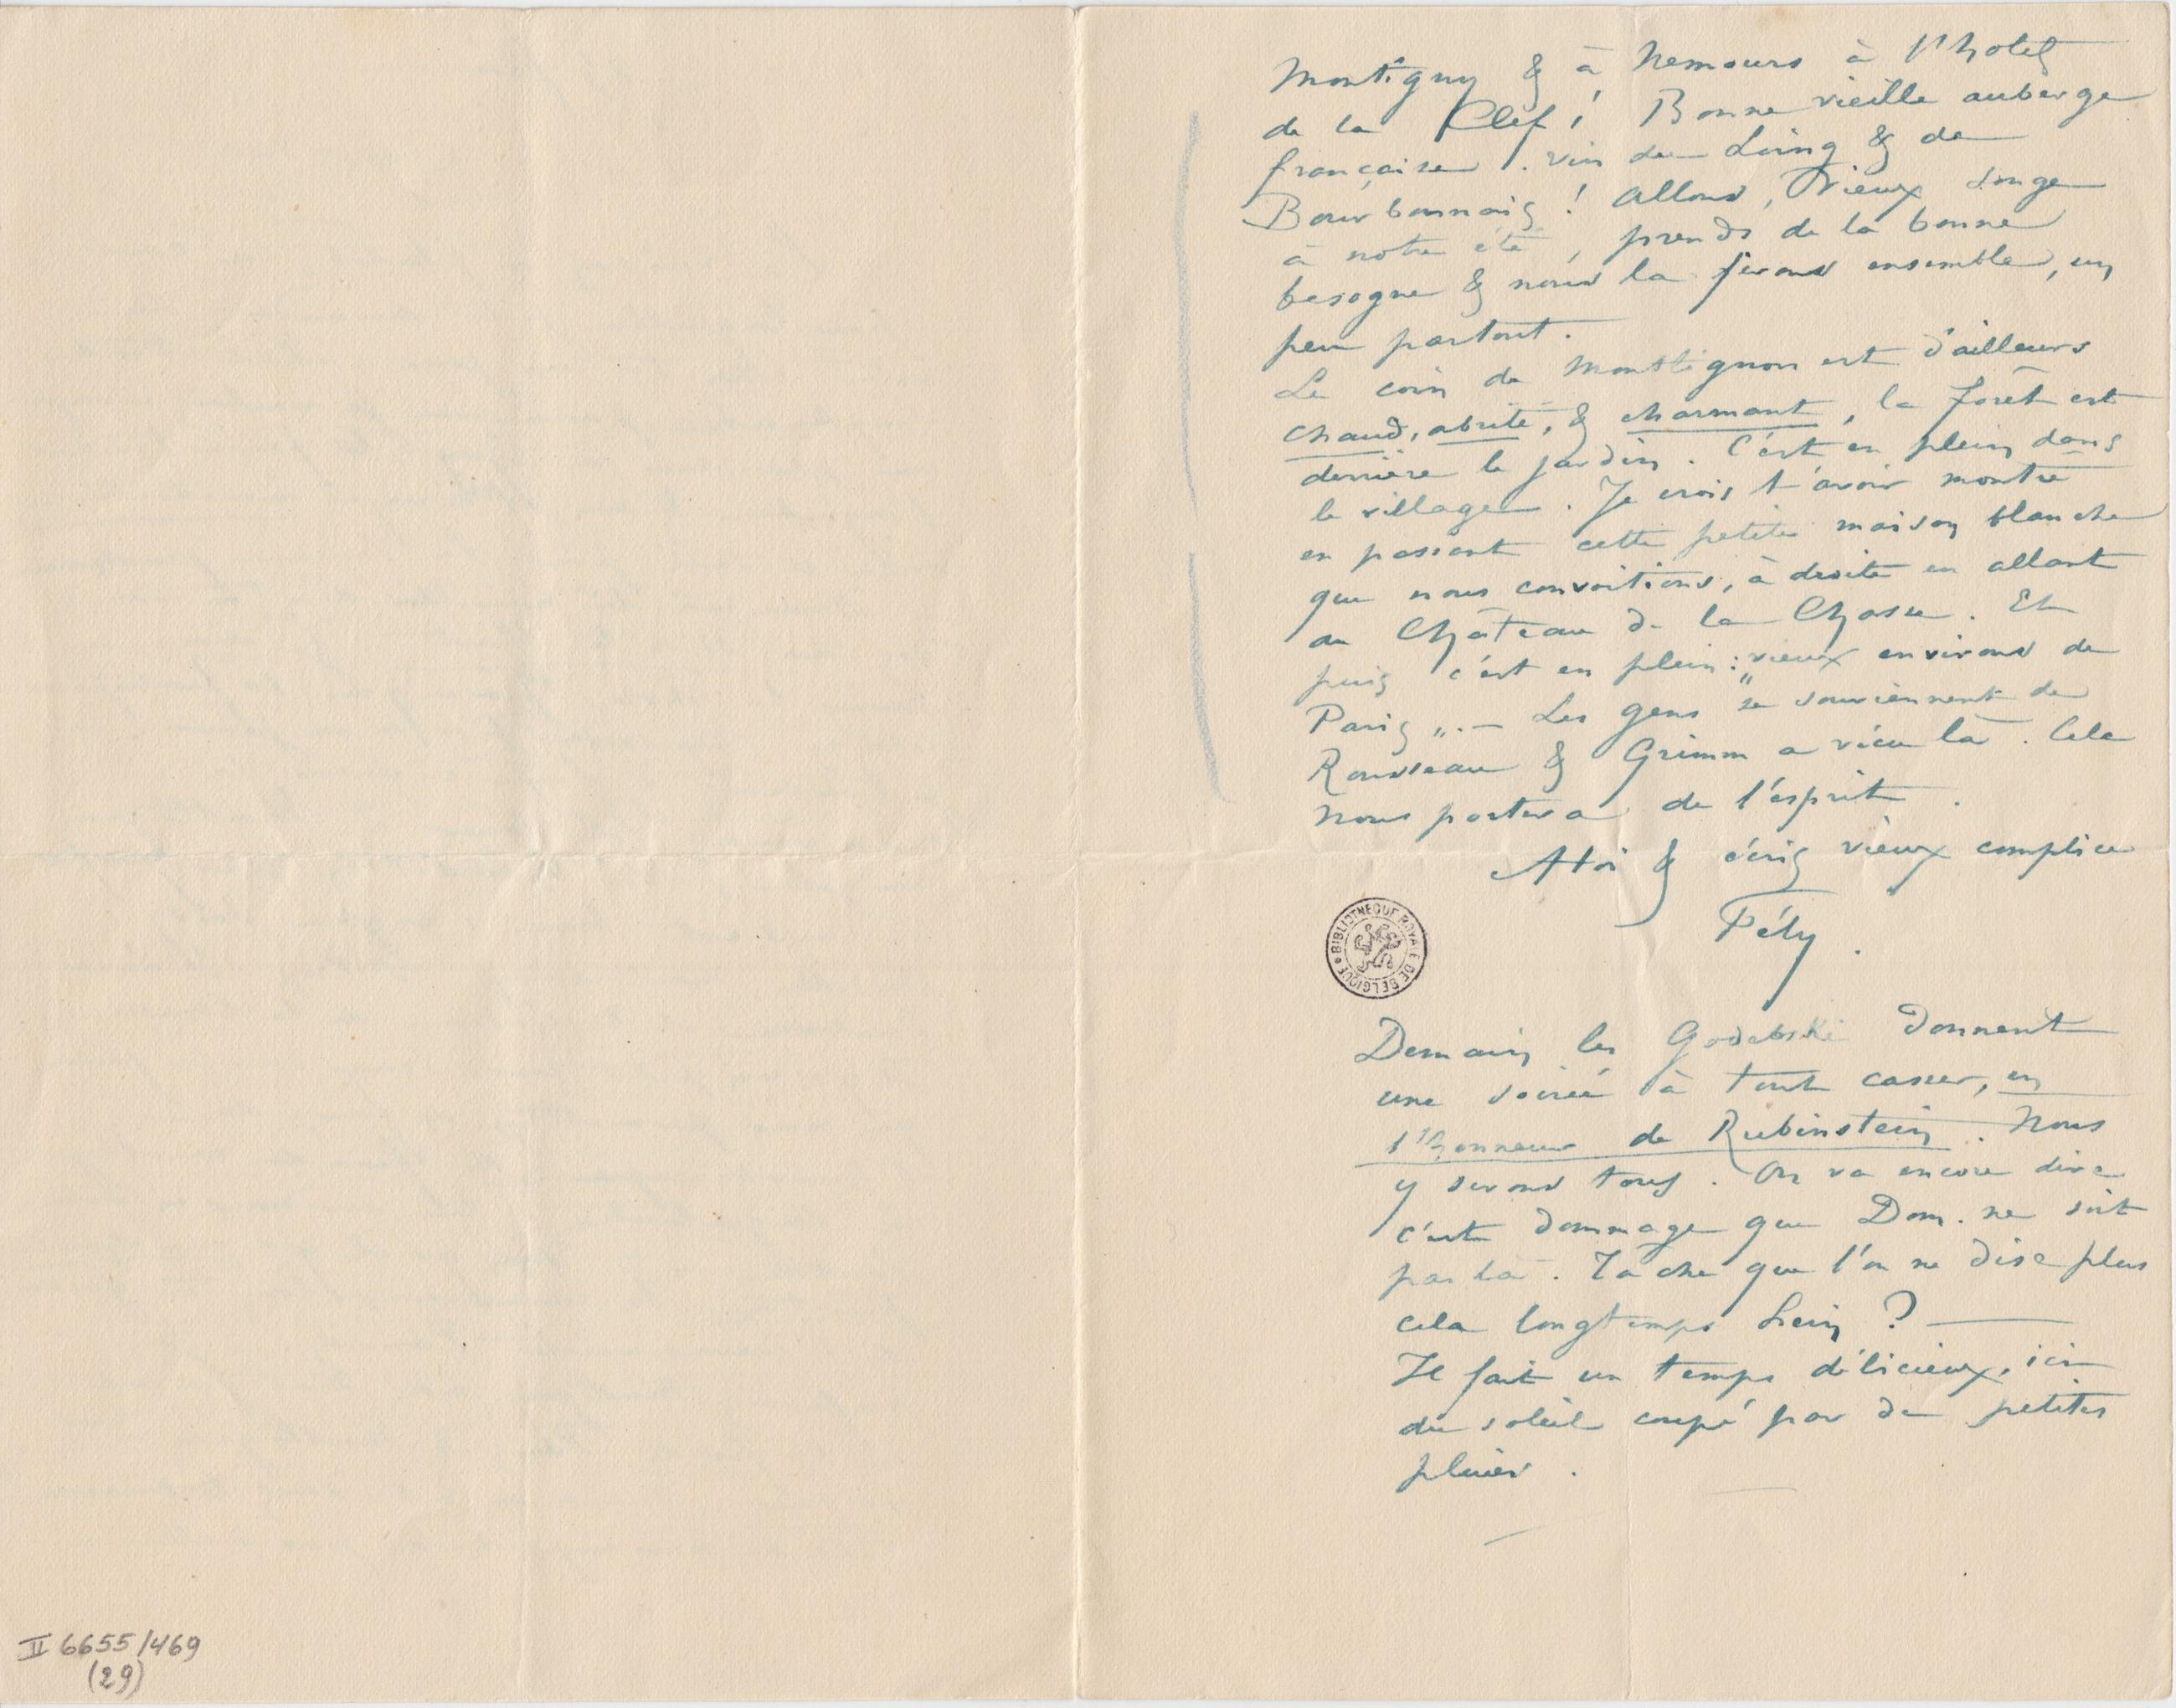 Montigny & à Nemours à l'hotel
de la Clef ! Bonne vieille auberge
française. vin du Loing & de
Bourbonnais ! Allons, Vieux songe
à notre été, prends de la bonne
besogne & nous la ferons ensemble, un
peu partout.
Le coin de Montlignon est d'ailleurs
chaud, abrité, & charmant, la forêt est
derrière le jardin. C'est en plein dans
le village. Je crois t'avoir montré
en passant cette petite maison blanche
que nous convoitions, à droite en allant
au Château de la Chasse. Et
puis c'est en plein : „vieux environs de
Paris„. — Les gens se souviennent de
Rousseau & Grimm a vécu là. Cela
nous portera de l'esprit.
A toi & écris vieux complice
Fély.
BIBLIOTHEQUE ROYALE DE BELGIQUE
Demain les Godebski donnent
une soirée à tout casser, en
l'honneur de Rubinstein. Nous
y serons tous. On va encore dire
c'est dommage que Dom. ne soit
pas là. Tache que l'on ne dise plus
cela longtemps hein ? —
Il fait un temps délicieux, ici
du soleil coupé par de petites
pluies.
II 6655/469
(29)